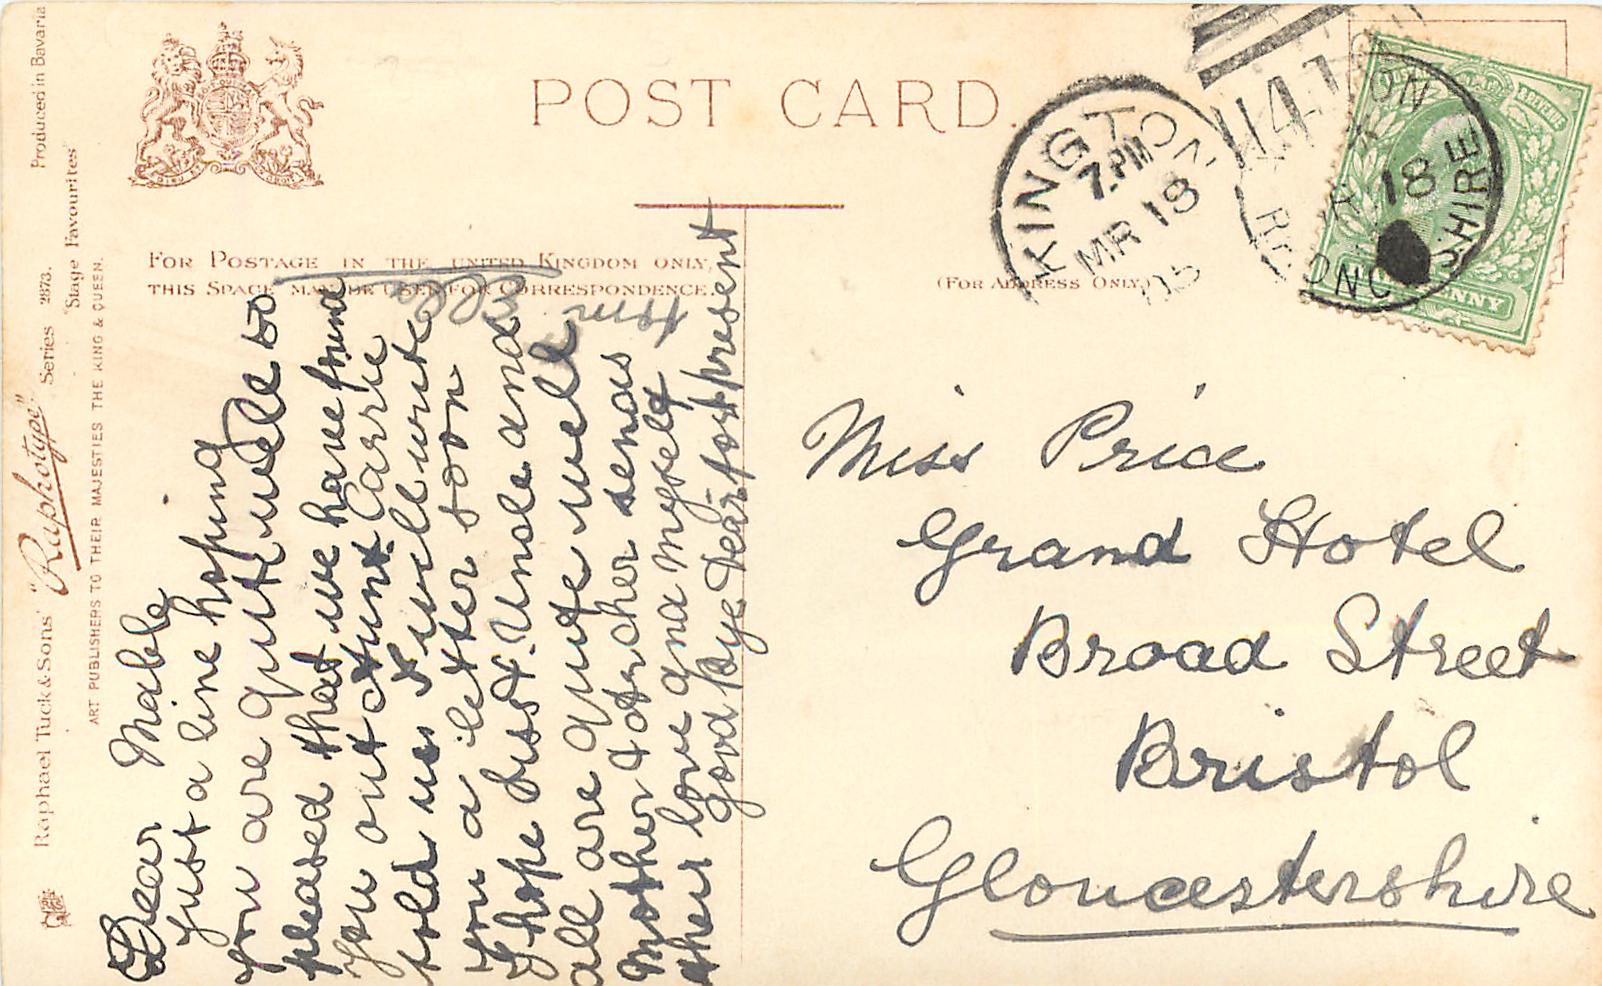 Produced in Bavaria
Raphael Tuck & Sons' "Raphotype" Series 2873.
"Stage Favourites"
ART PUBLISHERS TO THEIR MAJESTIES THE KING & QUEEN.
POST CARD.
FOR POSTAGE IN THE UNITED KINGDOM ONLY,
THIS SPACE MAY BE USED FOR CORRESPONDENCE.
(FOR ADDRESS ONLY.)
KINGTON
7.PM
MR 18
05
414
18
SHIRE
Dear Mable
Just a line hoping
you are quite well so
pleased that we have found
you out Aunt Carrie
told us I will write
you a letter soon
I hope Bust. Uncle and
all are quite well
Mother & Archer sends
their love and myself
Good Bye Dear for present
from Ella
Miss Price
Grand Hotel
Broad Street
Bristol
Gloucestershire